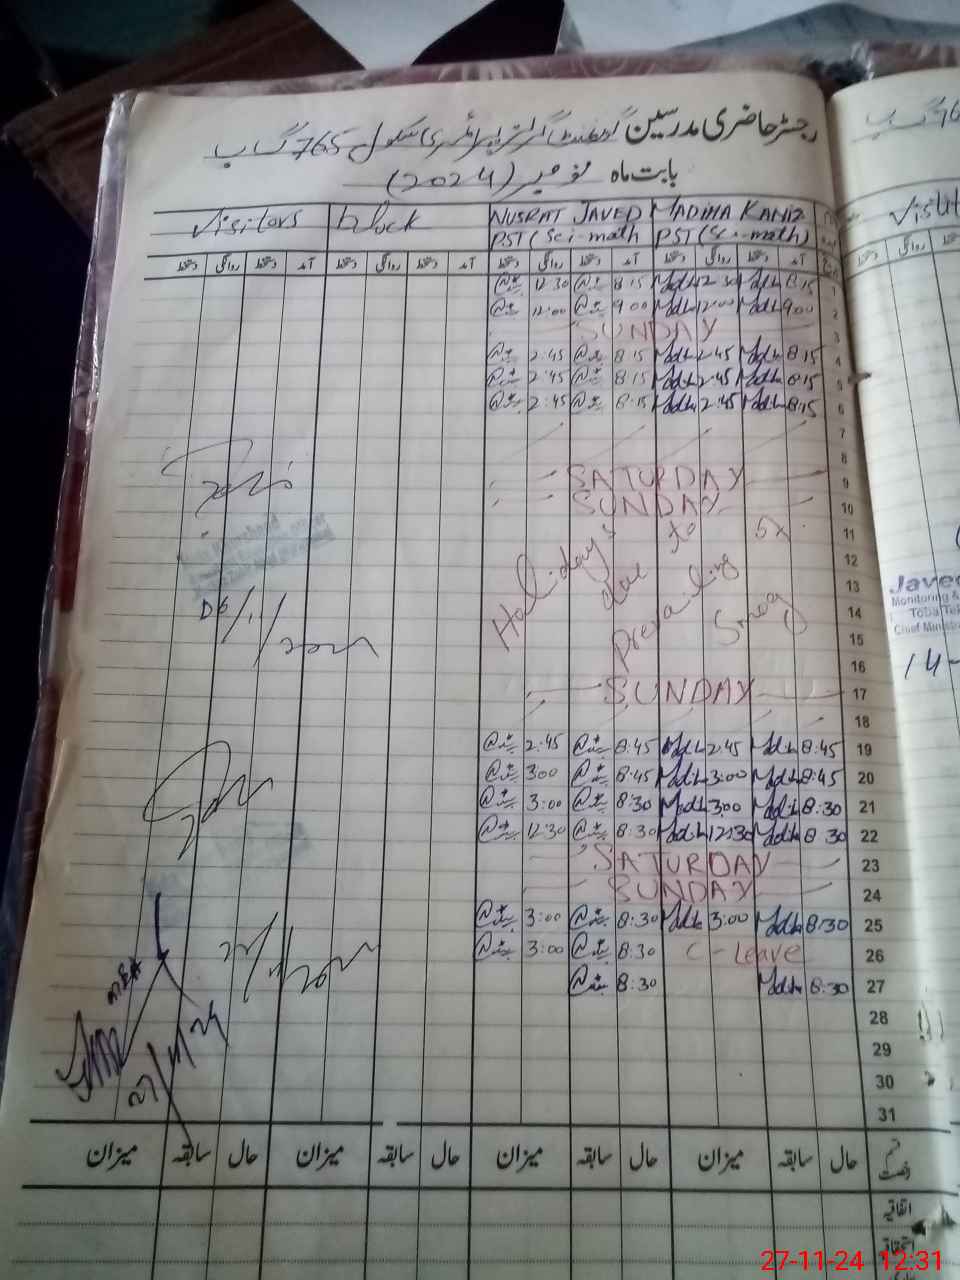 رجسٹر حاضری مدرسین گورنمنٹ گرلز پرائمری سکول 765 گ ب
بابت ماہ نومبر (2024)
Visitors block NUSRAT JAVED MADIHA KANIZ
PST (Sci-math PST (Sci-math)
دستخط روانگی دستخط آمد دستخط روانگی دستخط آمد دستخط روانگی دستخط آمد دستخط روانگی دستخط آمد
12:30 8:15 12:30 8:15 1
12:00 9:00 12:00 9:00 2
SUNDAY 3
2:45 8:15 2:45 8:15 4
2:45 8:15 2:45 8:15 5
2:45 8:15 2:45 8:15 6
7
8
SATURDAY 9
SUNDAY 10
11
12
13
14
15
16
Holidays due to
prevailing Smog
SUNDAY 17
18
2:45 8:45 2:45 8:45 19
3:00 8:45 3:00 8:45 20
3:00 8:30 3:00 8:30 21
12:30 8:30 12:30 8:30 22
SATURDAY 23
SUNDAY 24
3:00 8:30 3:00 8:30 25
3:00 8:30 C-Leave 26
8:30 8:30 27
28
29
30
31
27/11/24
میزان سابقہ حال میزان سابقہ حال میزان سابقہ حال میزان سابقہ حال قسم رخصت
اتفاقیہ
استحقاقیہ
Visit
Javed
Monitoring &
Toba Tek
Chief Minis
14-
27-11-24 12:31